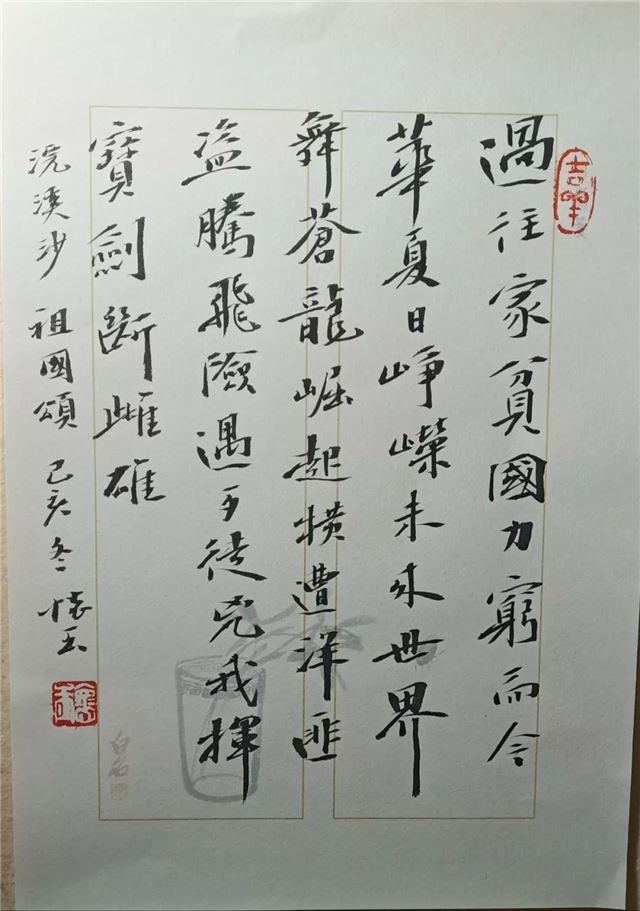 過往家貧國力窮而今
華夏日崢嶸未来世界
舞蒼龍崛起横遭洋匪
盗騰飛險遇歹徒兇我揮
寶劍斷雌雄
浣溪沙 祖國頌 己亥冬 懷玉
吉羊
白石